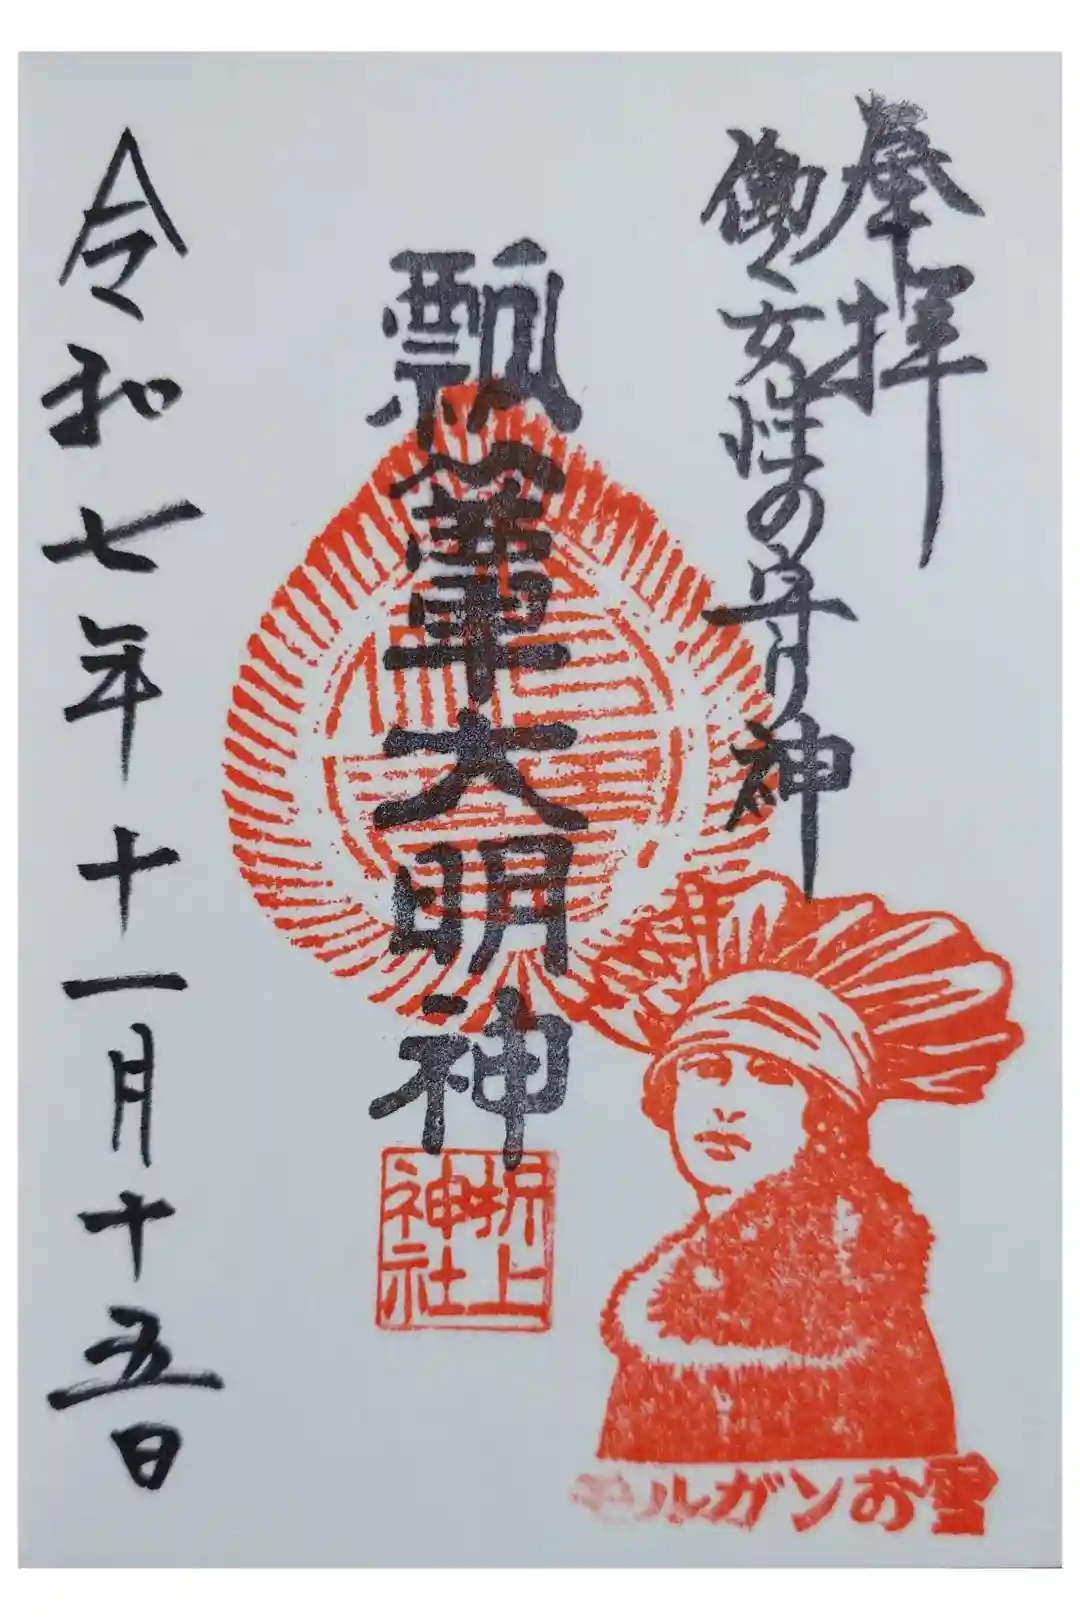 奉拝
働く女性の守り神
瓢簞大明神
折上
神社
令和七年十一月十五日
モルガンお雪